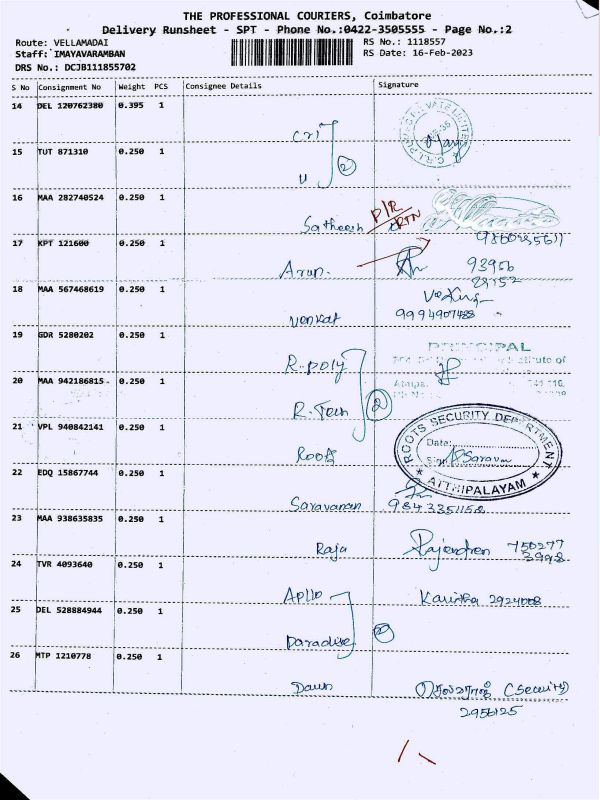 THE PROFESSIONAL COURIERS, Coimbatore
Delivery Runsheet - SPT - Phone No.:0422-3505555 - Page No.:2
Route: VELLAMADAI
RS No.: 1118557
Staff: IMAYAVARAMBAN
RS Date: 16-Feb-2023
DRS No.: DCJB111855702
S No Consignment No Weight PCS Consignee Details Signature
14 DEL 120762380 0.395 1
CRI
15 TUT 871310 0.250 1
U 2
16 MAA 282740524 0.250 1
Satheesh
17 KPT 121600 0.250 1 9860235611
Arun. 93956
29152
18 MAA 567468619 0.250 1
Venkat 9994907488
19 GDR 5280202 0.250 1
PRINCIPAL
R-poly
20 MAA 942186815 0.250 1
R.Tech 2
21 VPL 940842141 0.250 1
ROOTS SECURITY DEPARTMENT
Date:
ATTHIPALAYAM
Roots
22 EDQ 15867744 0.250 1
Saravanan 9843351158
23 MAA 938635835 0.250 1
Raja Rajendren 750277
24 TVR 4093640 0.250 1
Apllo Kavitha 2924008
25 DEL 528884944 0.250 1
Paradise 2
26 MTP 1210778 0.250 1
Dawn செல்வராஜ் (Security)
2956125